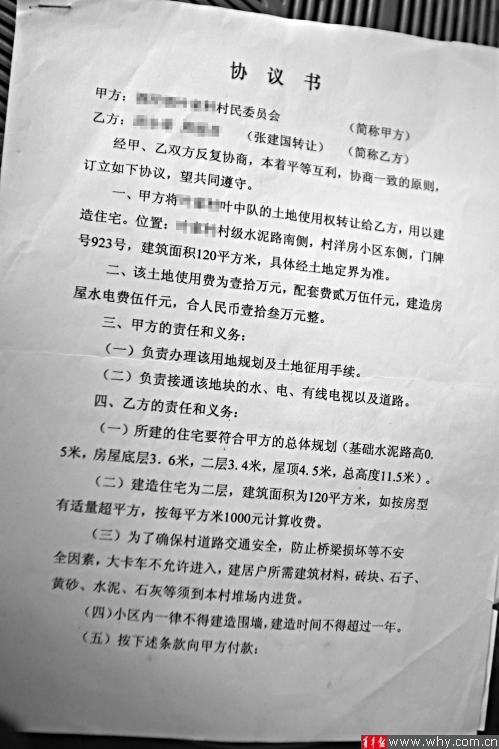 协 议 书
甲方：村民委员会 （简称甲方）
乙方： （张建国转让） （简称乙方）
经甲、乙双方反复协商，本着平等互利，协商一致的原则，
订立如下协议，望共同遵守。
一、甲方将叶中队的土地使用权转让给乙方，用以建
造住宅。位置：村级水泥路南侧，村洋房小区东侧，门牌
号923号，建筑面积120平方米，具体经土地定界为准。
二、该土地使用费为壹拾万元，配套费贰万伍仟元，建造房
屋水电费伍仟元，合人民币壹拾叁万元整。
三、甲方的责任和义务：
（一）负责办理该用地规划及土地征用手续。
（二）负责接通该地块的水、电、有线电视以及道路。
四、乙方的责任和义务：
（一）所建的住宅要符合甲方的总体规划（基础水泥路高0.
5米，房屋底层3．6米，二层3.4米，屋顶4.5米，总高度11.5米）。
（二）建造住宅为二层，建筑面积为120平方米，如按房型
有适量超平方，按每平方米1000元计算收费。
（三）为了确保村道路交通安全，防止桥梁损坏等不安
全因素，大卡车不允许进入，建居户所需建筑材料，砖块、石子、
黄砂、水泥、石灰等须到本村堆场内进货。
（四）小区内一律不得建造围墙，建造时间不得超过一年。
（五）按下述条款向甲方付款：
青年报 www.why.com.cn